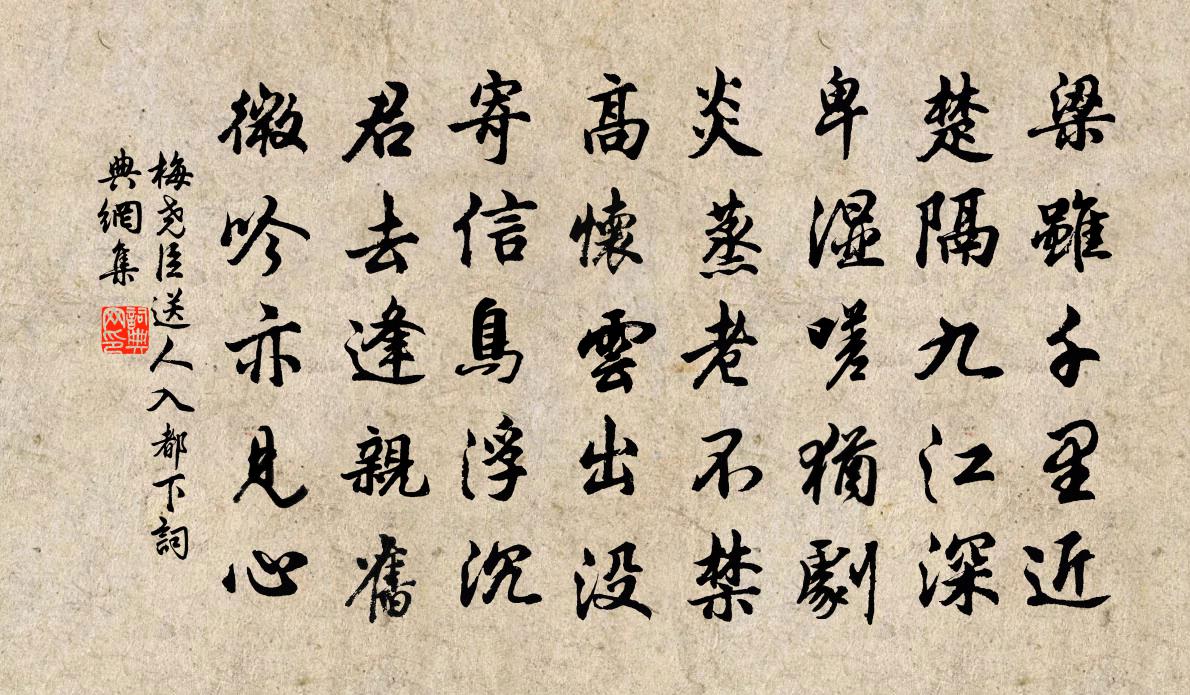 梁雖千里近
楚隔九江深
卑湿嗟猶劇
炎蒸老不禁
髙懷雲出没
寄信鳥浮沉
君去逢親舊
微吟亦見心
梅尧臣送人入都下詞
典網集
詞典
网印